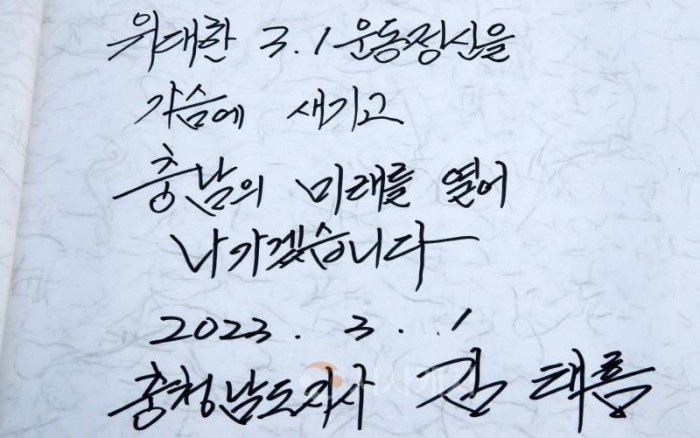 위대한 3.1운동정신을
가슴에 새기고
충남의 미래를 열어
나가겠습니다
2023. 3. 1
충청남도지사 김태흠